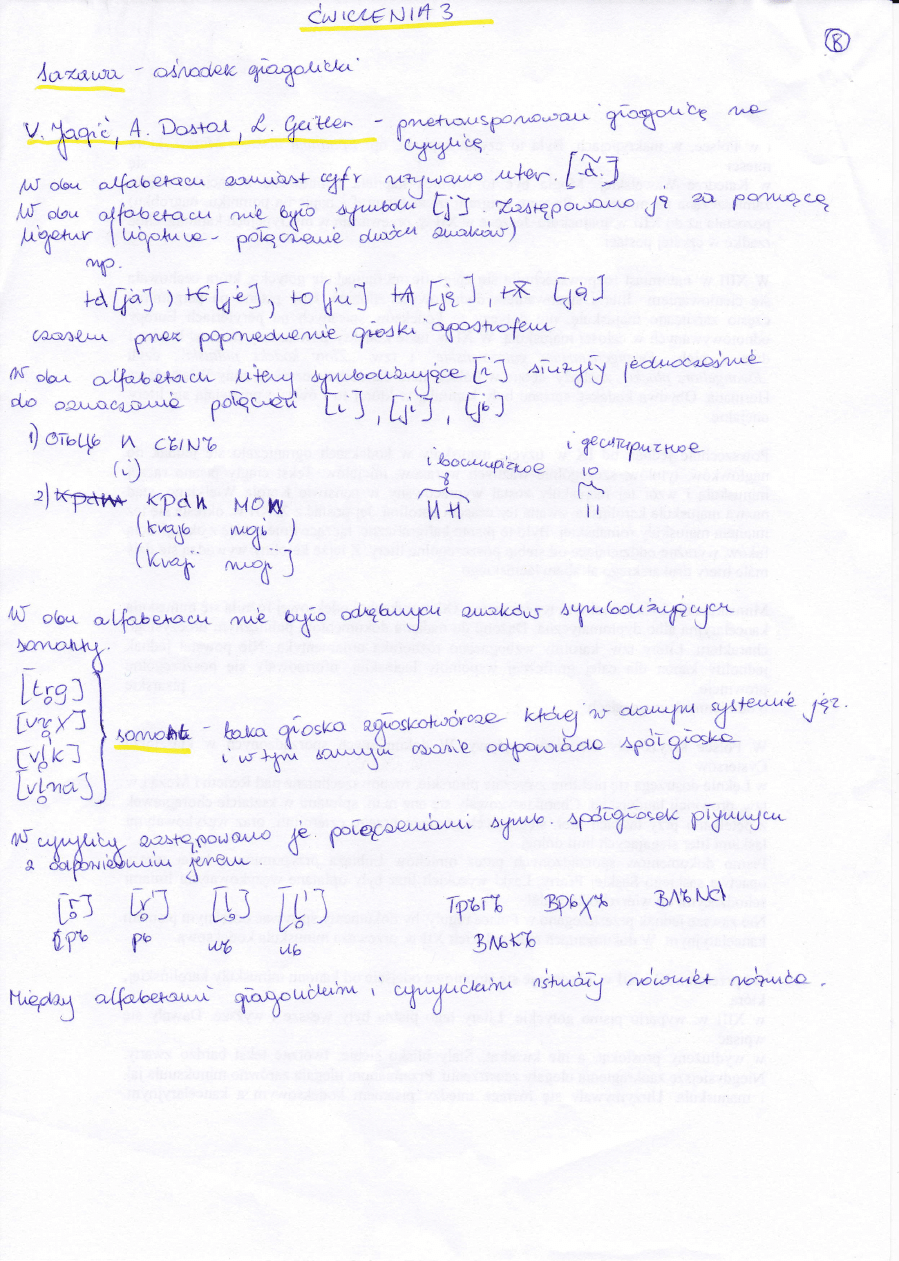 ĆWICZENIA 3
8
Sazawa - ośrodek głagolicki
V. Jagić, A. Dostal, L. Geitler - przetransponowali głagolicę na
cyrylicę
W obu alfabetach zamiast cyfr używano liter. [·а̃·]
W obu alfabetach nie było symbolu [j]. Zastępowano ją za pomocą
ligatur (ligatura - połączenie dwóch znaków)
np.
ꙗ [ja], ѥ [je], ю [ju], ѩ [ję], ѭ [jǫ]
czasem przez poprzedzenie głoski apostrofem
W obu alfabetach litery symbolizujące [i] służyły jednocześnie
do oznaczania połączeń [i], [ji], [jь]
1) отьць и сынъ
(i)
i восмиричное
i десятиричное
8
10
И Н
I I
2) краи мои
(krajь mojь)
(kraji moji]
W obu alfabetach nie było odrębnych znaków symbolizujących
sonanty.
[tr̥g]
[vr̥χ]
[vl̥k]
[vl̥na]
sonant - taka głoska zgłoskotwórcza której w danym systemie jęz.
i w tym samym czasie odpowiada spółgłoska
W cyrylicy zastępowano je połączeniami symb. spółgłosek płynnych
z odpowiednim jerem.
[r̥] [r̥'] [l̥] [l̥'] тръгъ врьхъ влъна
ръ рь лъ ль влькъ
Między alfabetami głagolickim i cyrylickim istniały również różnice.